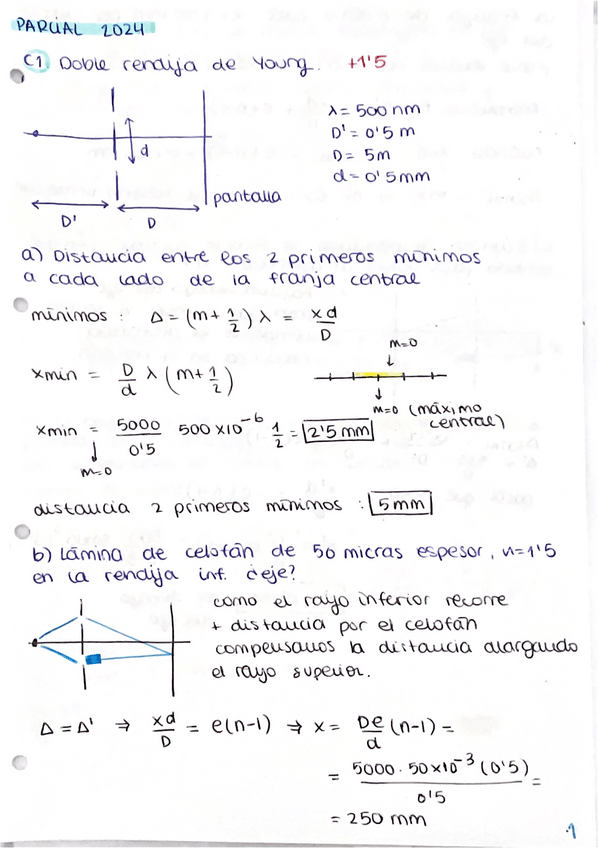 PARCIAL 2024
C1 Doble rendija de Young. +1'5
λ = 500 nm
D' = 0'5 m
D = 5m
d = 0'5mm
d
pantalla
D' D
a) Distancia entre los 2 primeros mínimos
a cada lado de la franja central
mínimos : Δ = (m + 1/2) λ = xd/D
m=0
xmín = D/d λ (m + 1/2)
m=0 (máximo
central)
xmín = 5000/0'5 500 x10^-6 1/2 = 2'5 mm
↓
m=0
distancia 2 primeros mínimos : 5 mm
b) Lámina de celofán de 50 micras espesor, n=1'5
en la rendija inf. ¿eje?
como el rayo inferior recorre
+ distancia por el celofán
compensamos la distancia alargando
el rayo superior.
Δ = Δ' ⇒ xd/D = e(n-1) → x = De/d (n-1) =
= 5000 · 50x10^-3 (0'5)/0'5 =
= 250 mm
1